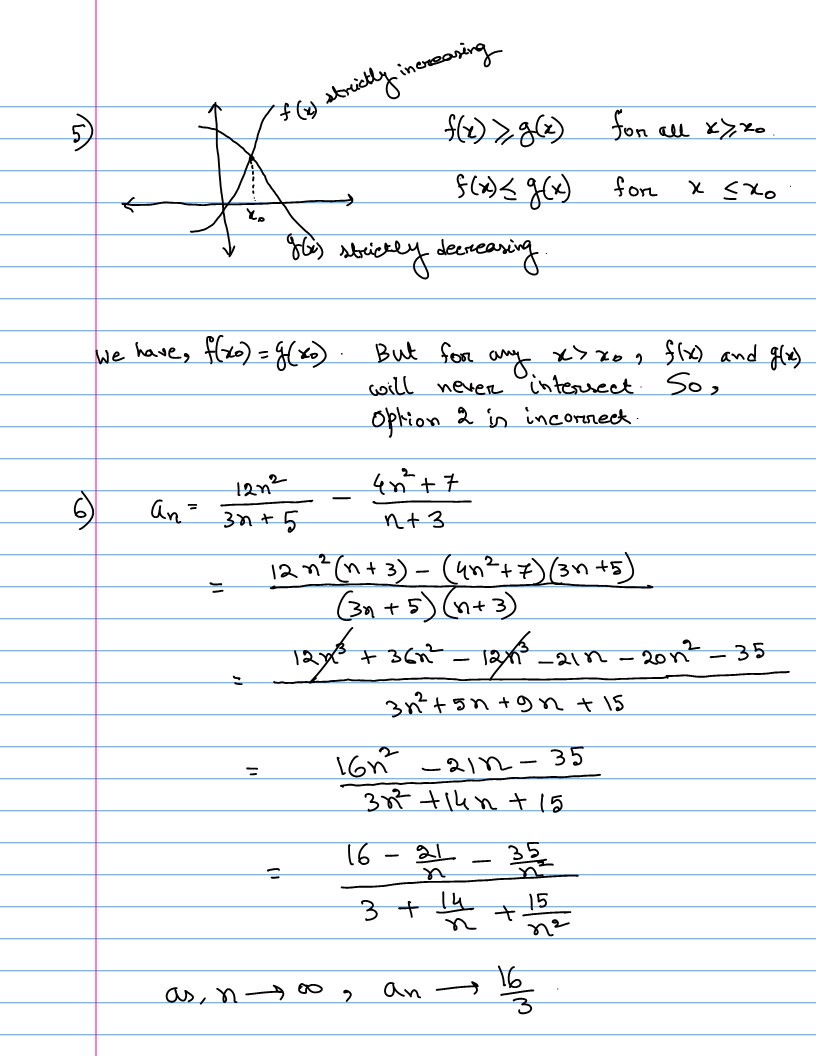 5)
f(x) strictly increasing
f(x) ⩾ g(x) for all x ⩾ x₀.
f(x) ≤ g(x) for x ≤ x₀.
x₀
g(x) strictly decreasing.
We have, f(x₀) = g(x₀). But for any x > x₀, f(x) and g(x)
will never intersect. So,
Option 2 is incorrect.
6) aₙ = 12n²/(3n + 5) − (4n² + 7)/(n + 3)
= (12n²(n + 3) − (4n² + 7)(3n + 5))/((3n + 5)(n + 3))
= (12n³ + 36n² − 12n³ − 21n − 20n² − 35)/(3n² + 5n + 9n + 15)
= (16n² − 21n − 35)/(3n² + 14n + 15)
= (16 − 21/n − 35/n²)/(3 + 14/n + 15/n²)
as, n ⟶ ∞, aₙ ⟶ 16/3.